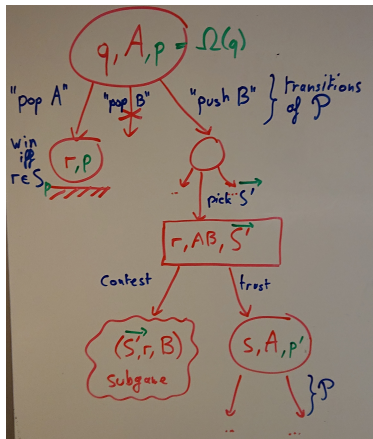 q, A, p = Ω(q)
"pop A" "pop B" "push B" } transitions of P
win iff r∈S_p
r, p
... ...
pick S⃗'
r, AB, S⃗'
Contest trust
(S⃗', r, B)
subgame
s, A, p'
} P
... ...